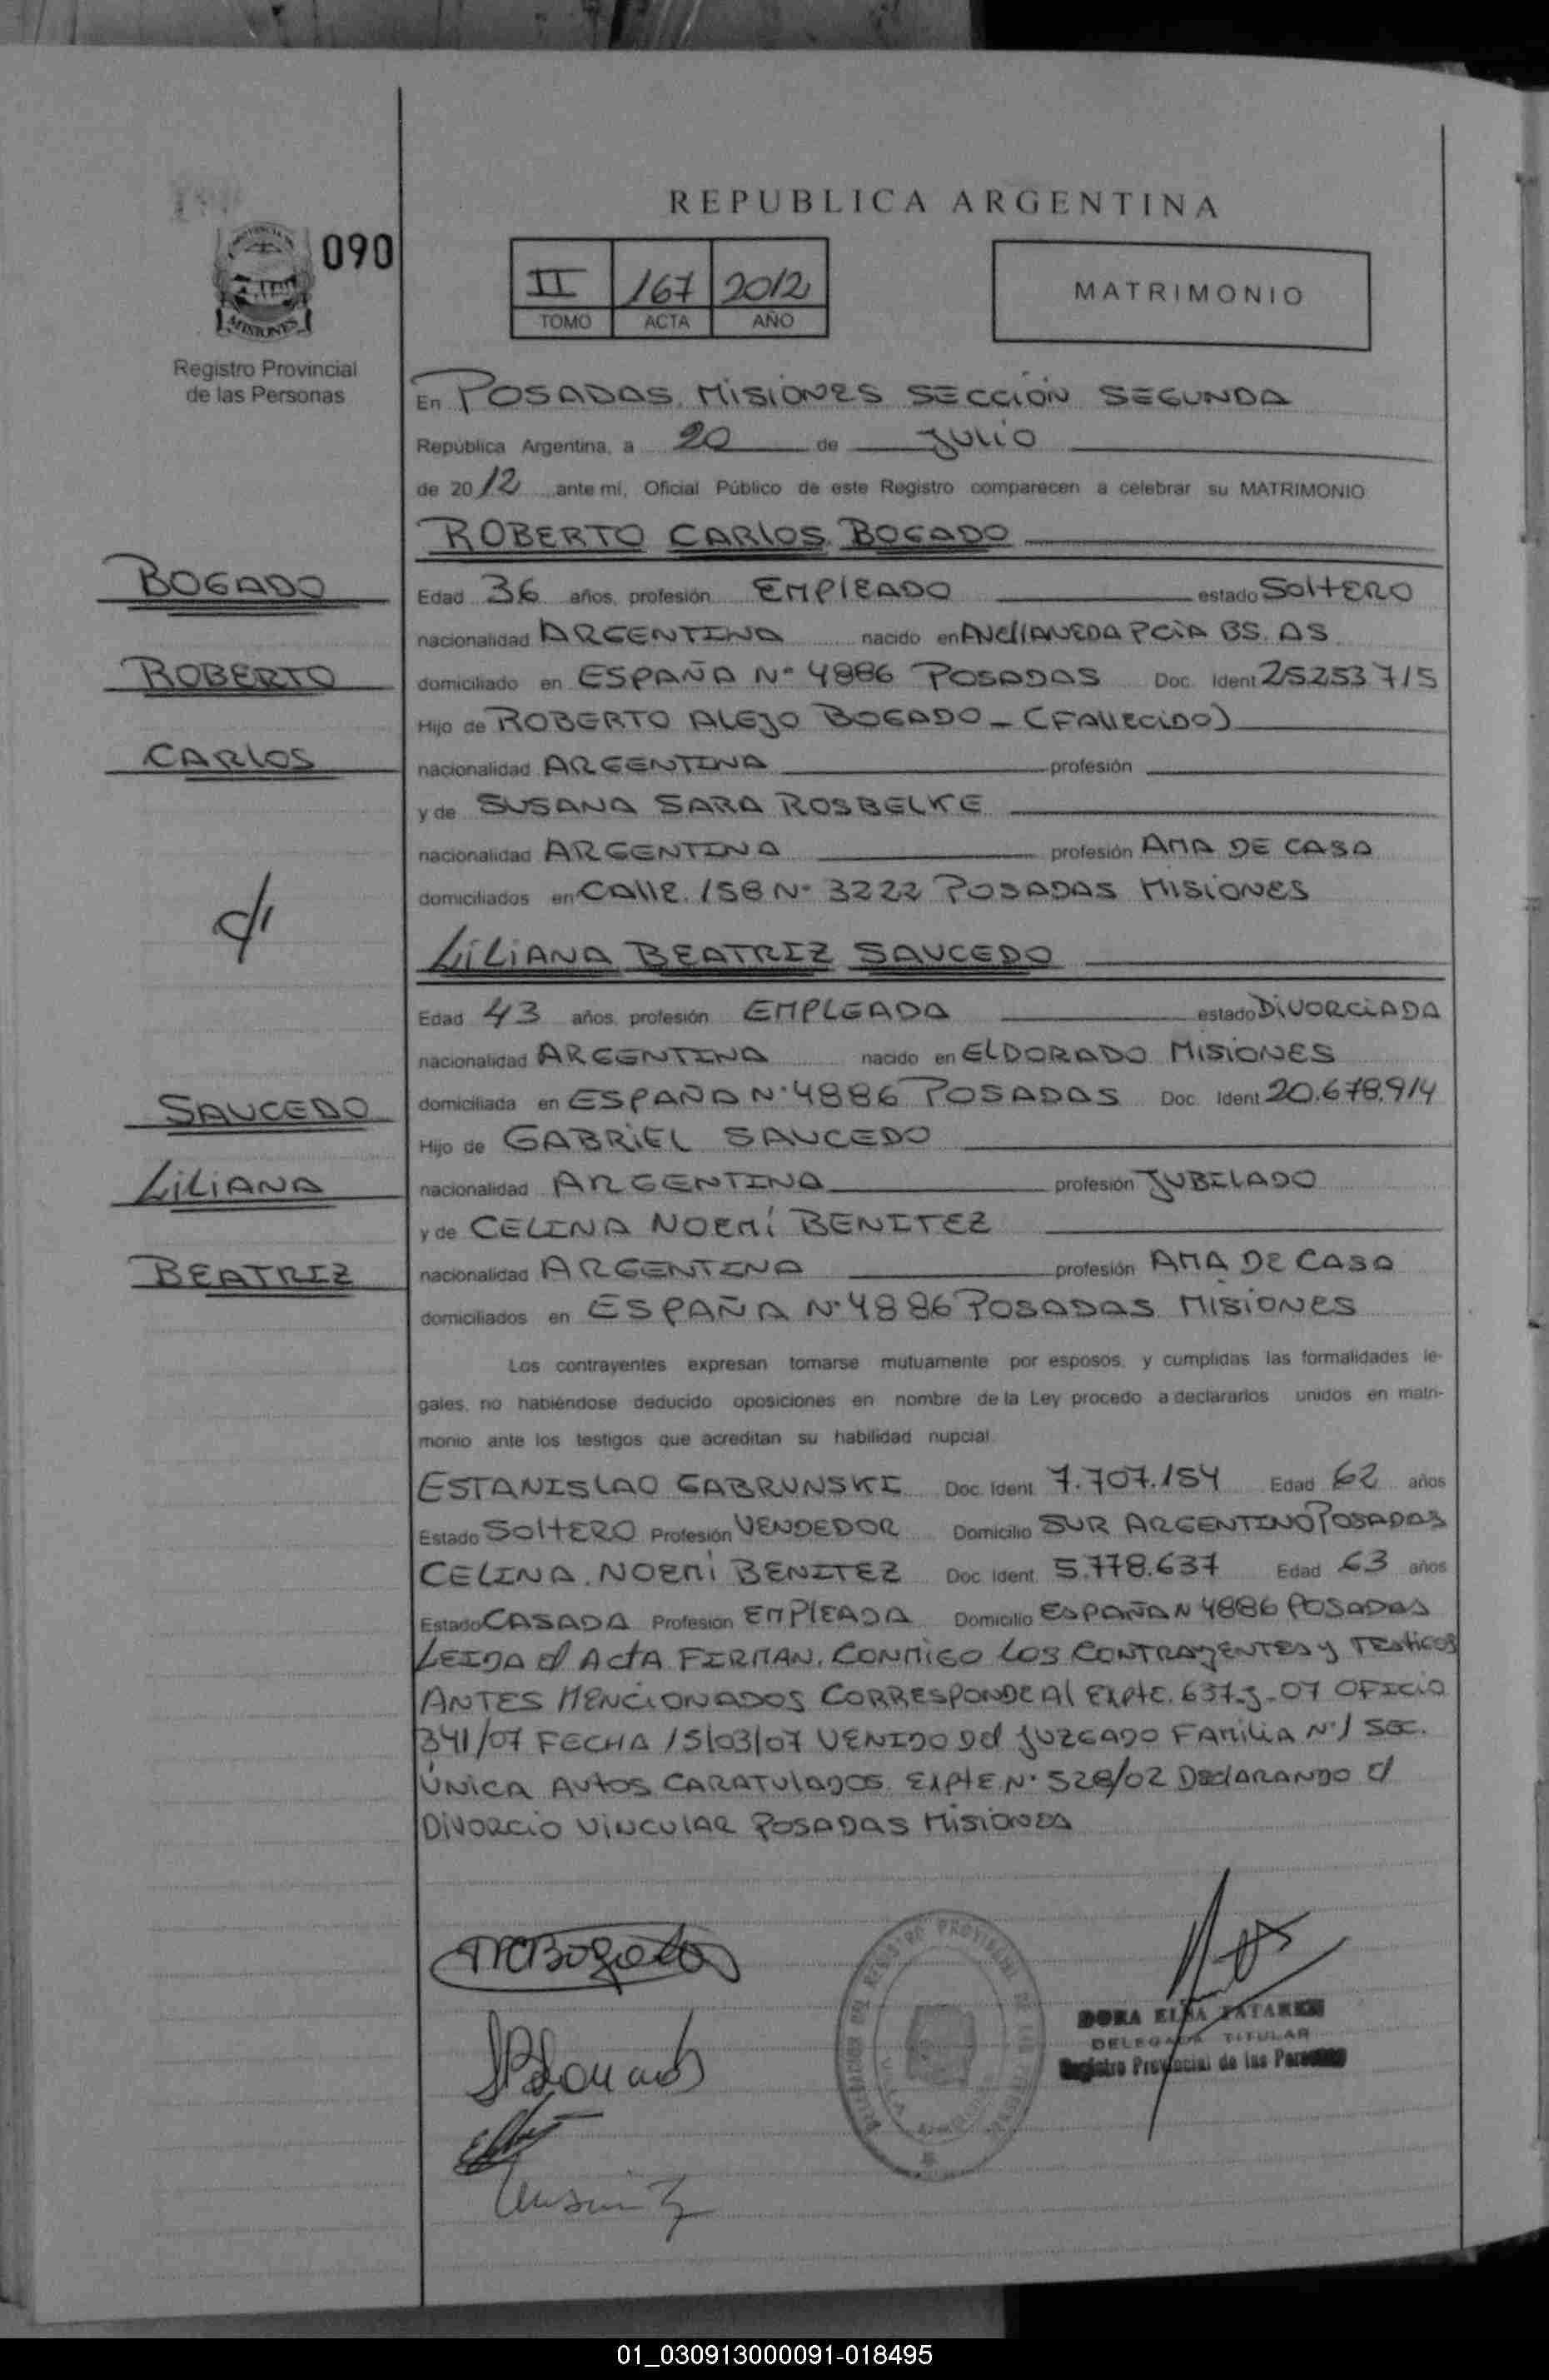 REPUBLICA ARGENTINA
090
II 167 2012
TOMO ACTA AÑO
MATRIMONIO
MISIONES
Registro Provincial
de las Personas
En POSADAS. MISIONES SECCIÓN SEGUNDA
República Argentina, a 20 de JULIO
de 2012 ante mí, Oficial Público de este Registro comparecen a celebrar su MATRIMONIO
ROBERTO CARLOS BOGADO
BOGADO
Edad 36 años, profesión EMPLEADO estado SOLTERO
nacionalidad ARGENTINA nacido en AVELLANEDA PCIA BS. AS
ROBERTO
domiciliado en ESPAÑA Nº 4886 POSADAS Doc. Ident 25253715
Hijo de ROBERTO ALEJO BOGADO - (FALLECIDO)
CARLOS
nacionalidad ARGENTINA profesión
y de SUSANA SARA ROSBELKE
nacionalidad ARGENTINA profesión AMA DE CASA
domiciliados en CALLE 158 Nº 3222 POSADAS MISIONES
LILIANA BEATRIZ SAUCEDO
Edad 43 años, profesión EMPLEADA estado DIVORCIADA
nacionalidad ARGENTINA nacido en ELDORADO MISIONES
SAUCEDO
domiciliada en ESPAÑA Nº 4886 POSADAS Doc. Ident 20.678.914
Hijo de GABRIEL SAUCEDO
LILIANA
nacionalidad ARGENTINA profesión JUBILADO
y de CELINA NOEMÍ BENITEZ
BEATRIZ
nacionalidad ARGENTINA profesión AMA DE CASA
domiciliados en ESPAÑA Nº 4886 POSADAS MISIONES
Los contrayentes expresan tomarse mutuamente por esposos, y cumplidas las formalidades le-
gales, no habiéndose deducido oposiciones en nombre de la Ley procedo a declararlos unidos en matri-
monio ante los testigos que acreditan su habilidad nupcial.
ESTANISLAO GABRUNSKI Doc. Ident. 7.707.154 Edad 62 años
Estado SOLTERO Profesión VENDEDOR Domicilio SUR ARGENTINO POSADAS
CELINA. NOEMÍ BENITEZ Doc. Ident. 5.778.637 Edad 63 años
Estado CASADA Profesión EMPLEADA Domicilio ESPAÑA N 4886 POSADAS
LEIDA el ACTA FIRMAN. CONMIGO LOS CONTRAYENTES y TESTIGOS
ANTES MENCIONADOS CORRESPONDE AL EXPTE. 637-J-07 OFICIO
341/07 FECHA 15/03/07 VENIDO DEL JUZGADO FAMILIA Nº 1 SEC.
ÚNICA AUTOS CARATULADOS EXPTE Nº 528/02 DECLARANDO el
DIVORCIO VINCULAR POSADAS MISIONES
DORA ELBA
DELEGADA TITULAR
Registro Provincial de las Personas
01_030913000091-018495